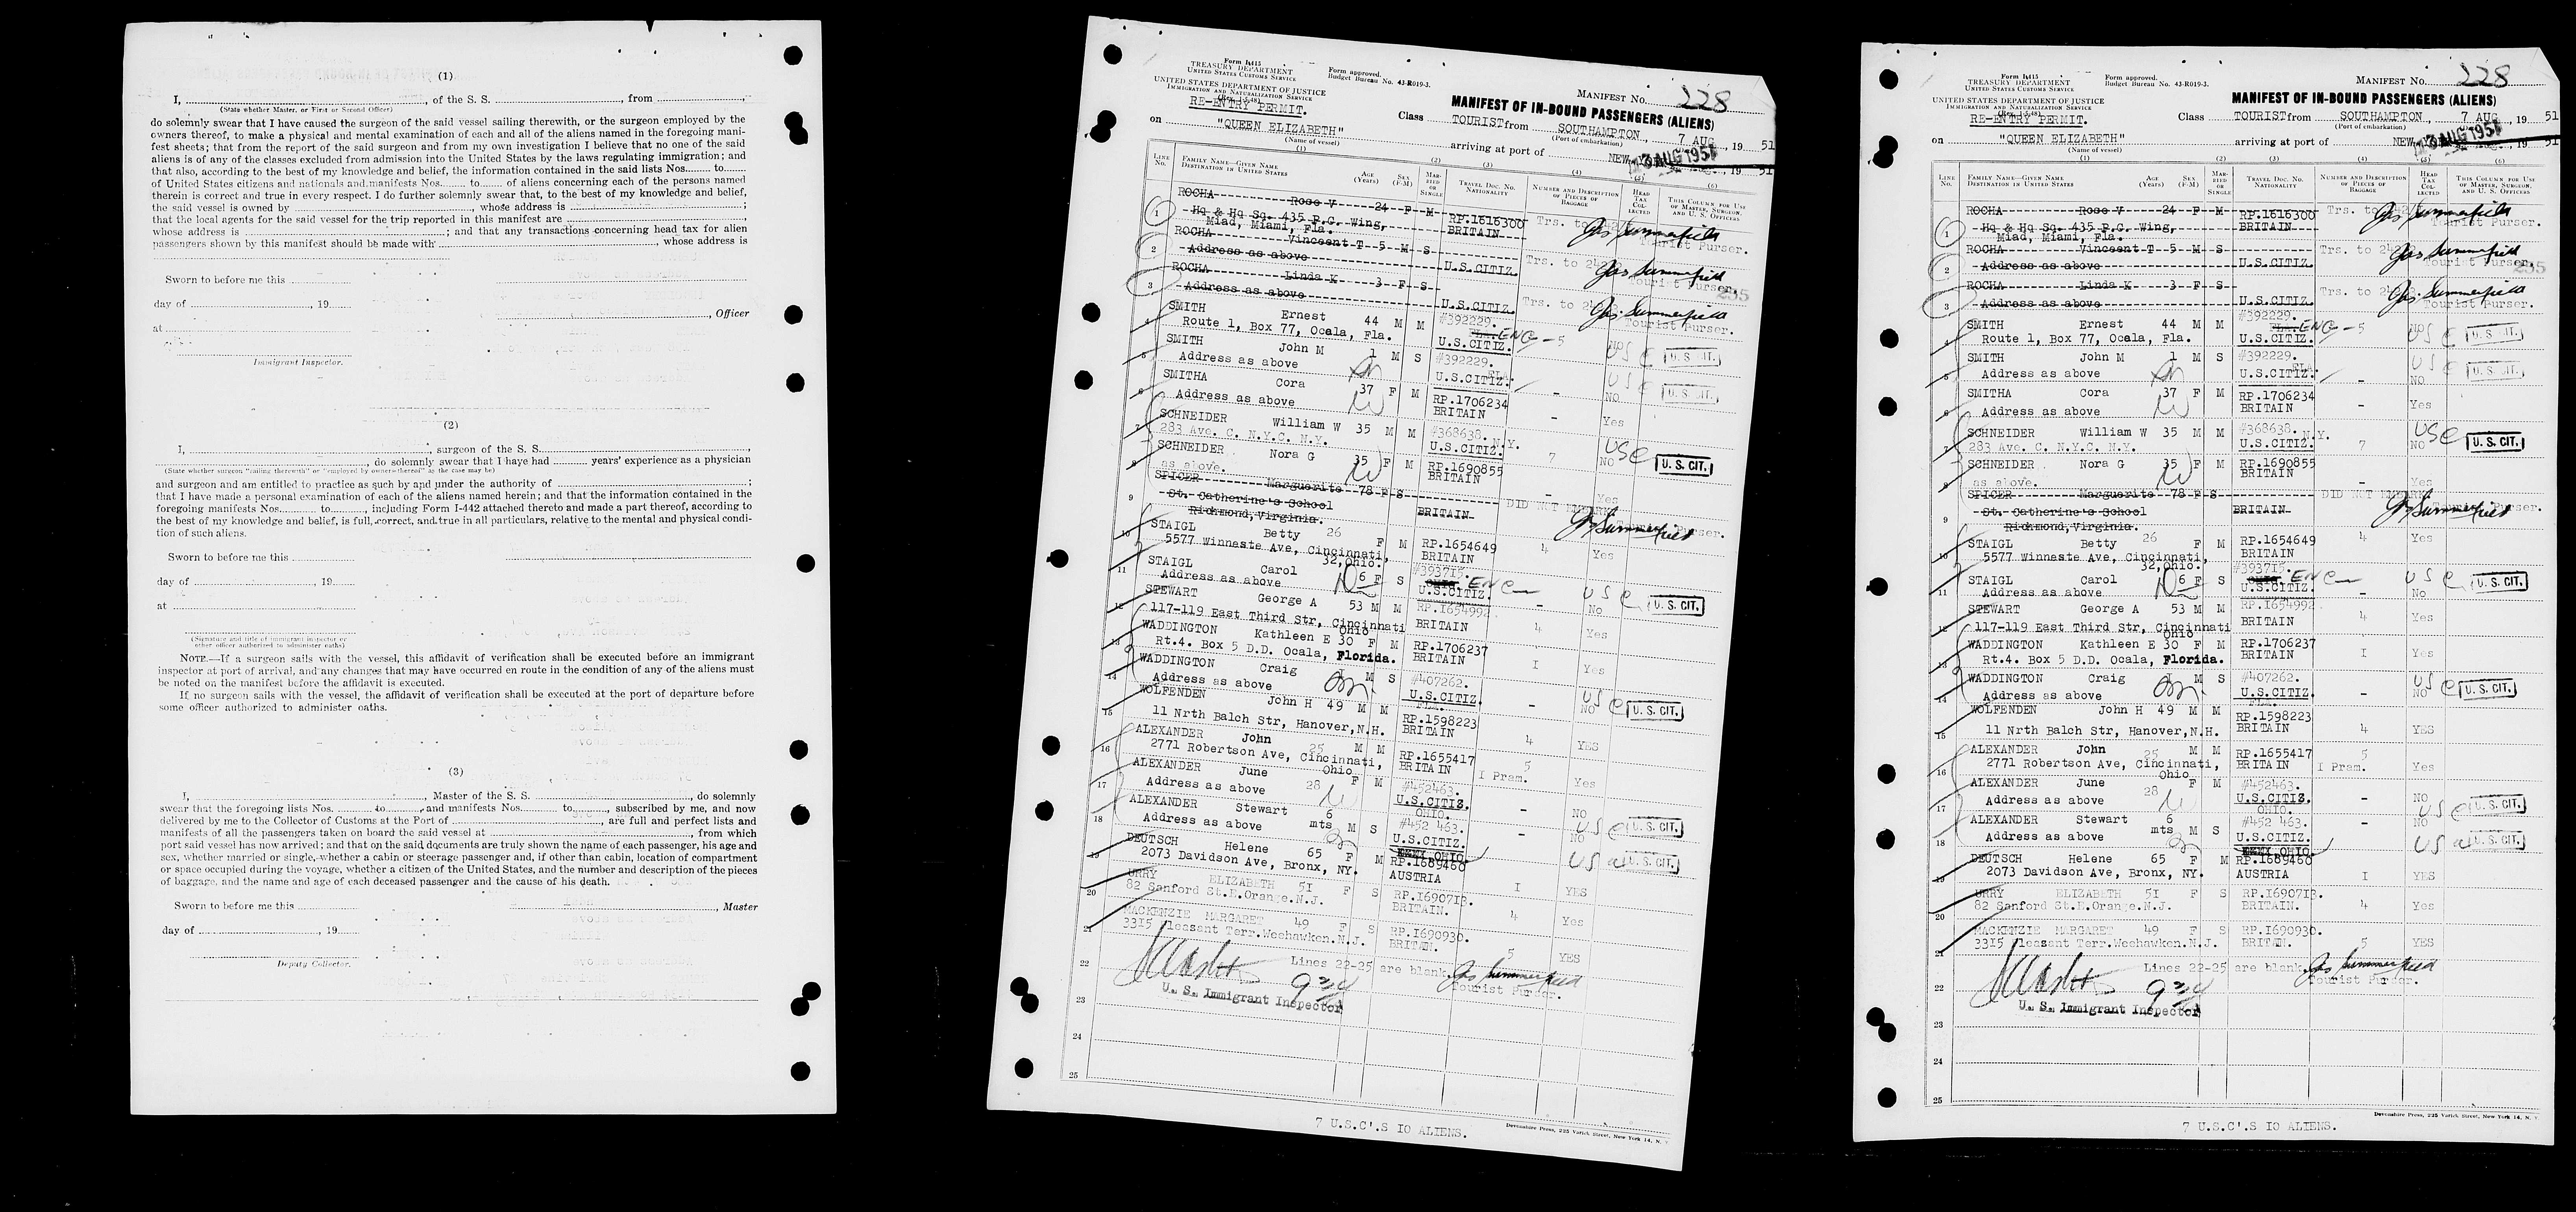 (1)
I, , of the S. S. , from ,
(State whether Master, or First or Second Officer)
do solemnly swear that I have caused the surgeon of the said vessel sailing therewith, or the surgeon employed by the
owners thereof, to make a physical and mental examination of each and all of the aliens named in the foregoing mani-
fest sheets; that from the report of the said surgeon and from my own investigation I believe that no one of the said
aliens is of any of the classes excluded from admission into the United States by the laws regulating immigration; and
that also, according to the best of my knowledge and belief, the information contained in the said lists Nos. to
of United States citizens and nationals and manifests Nos. to of aliens concerning each of the persons named
therein is correct and true in every respect. I do further solemnly swear that, to the best of my knowledge and belief,
the said vessel is owned by , whose address is ;
that the local agents for the said vessel for the trip reported in this manifest are ,
whose address is ; and that any transactions concerning head tax for alien
passengers shown by this manifest should be made with , whose address is
Sworn to before me this
day of , 19
, Officer
at
Immigrant Inspector.
(2)
I, , surgeon of the S. S. ,
, do solemnly swear that I have had years' experience as a physician
(State whether surgeon "sailing therewith" or "employed by owners thereof" as the case may be)
and surgeon and am entitled to practice as such by and under the authority of ;
that I have made a personal examination of each of the aliens named herein; and that the information contained in the
foregoing manifests Nos. to , including Form I-442 attached thereto and made a part thereof, according to
the best of my knowledge and belief, is full, correct, and true in all particulars, relative to the mental and physical condi-
tion of such aliens.
Sworn to before me this
day of , 19
at
(Signature and title of immigrant inspector or
other officer authorized to administer oaths)
NOTE.—If a surgeon sails with the vessel, this affidavit of verification shall be executed before an immigrant
inspector at port of arrival, and any changes that may have occurred en route in the condition of any of the aliens must
be noted on the manifest before the affidavit is executed.
If no surgeon sails with the vessel, the affidavit of verification shall be executed at the port of departure before
some officer authorized to administer oaths.
(3)
I, , Master of the S. S. , do solemnly
swear that the foregoing lists Nos. to , and manifests Nos. to , subscribed by me, and now
delivered by me to the Collector of Customs at the Port of , are full and perfect lists and
manifests of all the passengers taken on board the said vessel at , from which
port said vessel has now arrived; and that on the said documents are truly shown the name of each passenger, his age and
sex, whether married or single, whether a cabin or steerage passenger and, if other than cabin, location of compartment
or space occupied during the voyage, whether a citizen of the United States, and the number and description of the pieces
of baggage, and the name and age of each deceased passenger and the cause of his death.
Sworn to before me this
, Master
day of , 19
Deputy Collector.
Form I-415
TREASURY DEPARTMENT
UNITED STATES CUSTOMS SERVICE
Form approved.
Budget Bureau No. 43-R019-3.
UNITED STATES DEPARTMENT OF JUSTICE
IMMIGRATION AND NATURALIZATION SERVICE
RE-ENTRY PERMIT.
MANIFEST No. 228
MANIFEST OF IN-BOUND PASSENGERS (ALIENS)
Class TOURIST from SOUTHAMPTON, 7 AUG, 19 51
(Port of embarkation)
on "QUEEN ELIZABETH" arriving at port of NEW AUG 1951, 19 51
(Name of vessel)
(1) (2) (3) (4) (5) (6)
LINE No. FAMILY NAME—GIVEN NAME DESTINATION IN UNITED STATES AGE (Years) SEX (F-M) MARRIED OR SINGLE TRAVEL DOC. NO. NATIONALITY NUMBER AND DESCRIPTION OF PIECES OF BAGGAGE HEAD TAX COLLECTED THIS COLUMN FOR USE OF MASTER, SURGEON, AND U. S. OFFICERS
1 ROCHA Rose V 24 F M RP.1616300 Trs. to Jas Summerfield
Hq & Hq Sq. 435 P.C. Wing, BRITAIN Tourist Purser.
Miad, Miami, Fla.
2 ROCHA Vinceent T 5 M S U.S.CITIZ. Trs. to Jas Summerfield
Address as above Tourist Purser.
235
3 ROCHA Linda K 3 F S U.S.CITIZ. Trs. to Jas Summerfield
Address as above Tourist Purser.
4 SMITH Ernest 44 M M #392229. ENG - 5 NO USC U. S. CIT.
Route 1, Box 77, Ocala, Fla. U.S.CITIZ.
5 SMITH John M 1 M S #392229. - NO USC U. S. CIT.
Address as above U.S.CITIZ.
6 SMITHA Cora 37 F M RP.1706234 - Yes
Address as above BRITAIN
7 SCHNEIDER William W 35 M M #368638. N.Y. 7 NO USC U. S. CIT.
283 Ave. C. N.Y.C. N.Y. U.S.CITIZ.
8 SCHNEIDER Nora G 35 F M RP.1690855 - Yes
as above. BRITAIN
9 SPICER Marguerite 78 F S BRITAIN DID NOT EMBARK Jas Summerfield
St. Catherine's School Purser.
Richmond, Virginia.
10 STAIGL Betty 26 F M RP.1654649 4 Yes
5577 Winneste Ave, Cincinnati, BRITAIN
32, Ohio.
11 STAIGL Carol 6 F S #393715. ENG - No USC U. S. CIT.
Address as above U.S.CITIZ.
12 STEWART George A 53 M M RP.I654992 4 Yes
117-119 East Third Str, Cincinnati BRITAIN
Ohio
13 WADDINGTON Kathleen E 30 F M RP.1706237 I Yes
Rt.4. Box 5 D.D. Ocala, Florida. BRITAIN
14 WADDINGTON Craig M S #407262. - NO USC U. S. CIT.
Address as above U.S.CITIZ.
FLA.
15 WOLFENDEN John H 49 M M RP.1598223 4 YES
11 Nrth Balch Str, Hanover, N.H. BRITAIN
16 ALEXANDER John 25 M M RP.1655417 5 Yes
2771 Robertson Ave, Cincinnati, BRITAIN I Pram.
Ohio
17 ALEXANDER June 28 F M #452463. - NO USC U. S. CIT.
Address as above U.S.CITIZ.
OHIO.
18 ALEXANDER Stewart 6 mts M S #452 463. - NO US U. S. CIT.
Address as above U.S.CITIZ.
OHIO
19 DEUTSCH Helene 65 F M RP.1689460 I YES
2073 Davidson Ave, Bronx, NY. AUSTRIA
20 URRY ELIZABETH 51 F S RP.I690713. 4 Yes
82 Sanford St.E.Orange.N.J. BRITAIN.
21 MACKENZIE MARGARET 49 F S RP.I690930. 5 YES
3315 Pleasant Terr.Weehawken.N.J. BRITAIN.
22 Lines 22-25 are blank. Jas Summerfield
Tourist Purser.
U. S. Immigrant Inspector
23
24
25
Devonshire Press, 225 Varick Street, New York 14, N. Y.
7 U.S.C'.S IO ALIENS.
Form I-415
TREASURY DEPARTMENT
UNITED STATES CUSTOMS SERVICE
Form approved.
Budget Bureau No. 43-R019-3.
UNITED STATES DEPARTMENT OF JUSTICE
IMMIGRATION AND NATURALIZATION SERVICE
RE-ENTRY PERMIT.
MANIFEST No. 228
MANIFEST OF IN-BOUND PASSENGERS (ALIENS)
Class TOURIST from SOUTHAMPTON, 7 AUG, 19 51
(Port of embarkation)
on "QUEEN ELIZABETH" arriving at port of NEW AUG 1951, 19 51
(Name of vessel)
(1) (2) (3) (4) (5) (6)
LINE No. FAMILY NAME—GIVEN NAME DESTINATION IN UNITED STATES AGE (Years) SEX (F-M) MARRIED OR SINGLE TRAVEL DOC. NO. NATIONALITY NUMBER AND DESCRIPTION OF PIECES OF BAGGAGE HEAD TAX COLLECTED THIS COLUMN FOR USE OF MASTER, SURGEON, AND U. S. OFFICERS
1 ROCHA Rose V 24 F M RP.1616300 Trs. to Jas Summerfield
Hq & Hq Sq. 435 P.C. Wing, BRITAIN Tourist Purser.
Miad, Miami, Fla.
2 ROCHA Vinceent T 5 M S U.S.CITIZ. Trs. to Jas Summerfield
Address as above Tourist Purser.
235
3 ROCHA Linda K 3 F S U.S.CITIZ. Trs. to Jas Summerfield
Address as above Tourist Purser.
4 SMITH Ernest 44 M M #392229. ENG - 5 NO USC U. S. CIT.
Route 1, Box 77, Ocala, Fla. U.S.CITIZ.
5 SMITH John M 1 M S #392229. - NO USC U. S. CIT.
Address as above U.S.CITIZ.
6 SMITHA Cora 37 F M RP.1706234 - Yes
Address as above BRITAIN
7 SCHNEIDER William W 35 M M #368638. N.Y. 7 NO USC U. S. CIT.
283 Ave. C. N.Y.C. N.Y. U.S.CITIZ.
8 SCHNEIDER Nora G 35 F M RP.1690855 - Yes
as above. BRITAIN
9 SPICER Marguerite 78 F S BRITAIN DID NOT EMBARK Jas Summerfield
St. Catherine's School Purser.
Richmond, Virginia.
10 STAIGL Betty 26 F M RP.1654649 4 Yes
5577 Winneste Ave, Cincinnati, BRITAIN
32, Ohio.
11 STAIGL Carol 6 F S #393715. ENG - No USC U. S. CIT.
Address as above U.S.CITIZ.
12 STEWART George A 53 M M RP.I654992 4 Yes
117-119 East Third Str, Cincinnati BRITAIN
Ohio
13 WADDINGTON Kathleen E 30 F M RP.1706237 I Yes
Rt.4. Box 5 D.D. Ocala, Florida. BRITAIN
14 WADDINGTON Craig M S #407262. - NO USC U. S. CIT.
Address as above U.S.CITIZ.
FLA.
15 WOLFENDEN John H 49 M M RP.1598223 4 YES
11 Nrth Balch Str, Hanover, N.H. BRITAIN
16 ALEXANDER John 25 M M RP.1655417 5 Yes
2771 Robertson Ave, Cincinnati, BRITAIN I Pram.
Ohio
17 ALEXANDER June 28 F M #452463. - NO USC U. S. CIT.
Address as above U.S.CITIZ.
OHIO.
18 ALEXANDER Stewart 6 mts M S #452 463. - NO US U. S. CIT.
Address as above U.S.CITIZ.
OHIO
19 DEUTSCH Helene 65 F M RP.1689460 I YES
2073 Davidson Ave, Bronx, NY. AUSTRIA
20 URRY ELIZABETH 51 F S RP.I690713. 4 Yes
82 Sanford St.E.Orange.N.J. BRITAIN.
21 MACKENZIE MARGARET 49 F S RP.I690930. 5 YES
3315 Pleasant Terr.Weehawken.N.J. BRITAIN.
22 Lines 22-25 are blank. Jas Summerfield
Tourist Purser.
U. S. Immigrant Inspector
23
24
25
Devonshire Press, 225 Varick Street, New York 14, N. Y.
7 U.S.C'.S IO ALIENS.